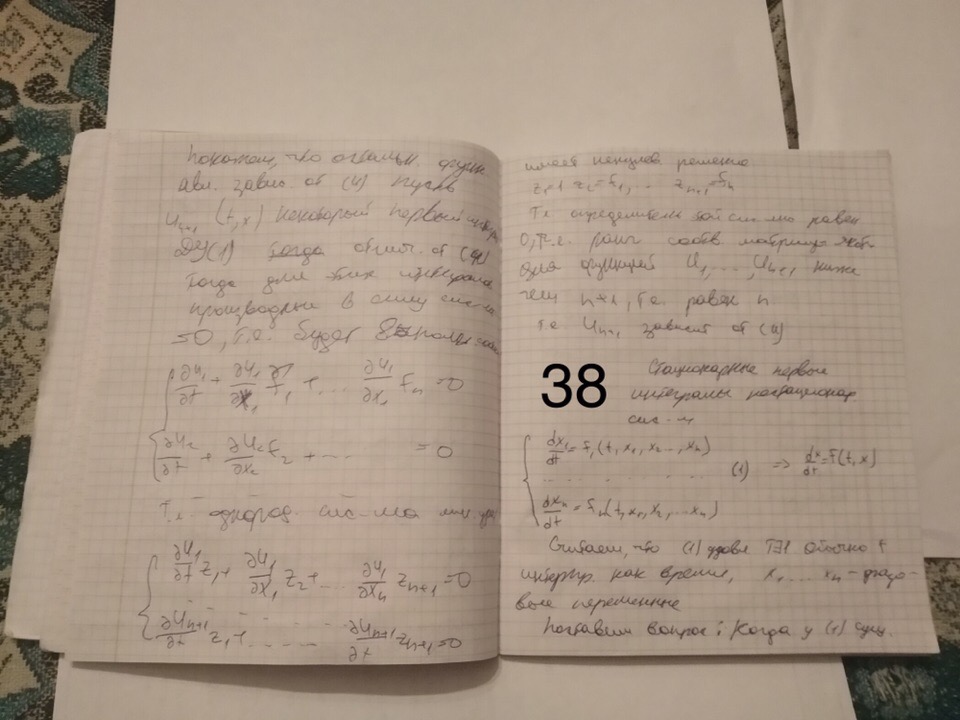 Покажем, что остальн. функ
явл. завис. от (4) Пусть
U_{n+1} (t,x) некоторый первый интегр
ДУ(1) тогда отлич. от (4)
Тогда для этих интеграло
производные в силу систе
=0, т.е. будет
∂U₁/∂t + ∂U₁/∂x₁ f₁ + ... ∂U₁/∂x₁ f_n =0
∂U₂/∂t + ∂U₂/∂x₂ f₂ + ... =0
Т.к однород. сис-ма лин. ур
∂U₁/∂t z₁ + ∂U₁/∂x₁ z₂ + ... ∂U₁/∂x_n z_{n+1} =0
- - - - -
∂U_{n+1}/∂t z₁ + - - - - ∂U_{n+1}/∂x z_{n+1} =0
имеет ненулев. решение
z₁=1 z₂=f₁, ... z_{n+1}=f_n
Т.к определитель этой сис-мы равен
0, т.е. ранг соотв. матрицы
для функций U₁,...,U_{n+1} ниже
чем n+1, т.е. равен n
т.е U_{n+1} зависит от (4)
38
Стационарные первые
интегралы нестационар
сис-м
dx₁/dt = f₁(t, x₁, x₂..., x_n)
. . . . . . . . (1) => dx/dt = f(t, x)
dx_n/dt = f_n(t, x₁, x₂, ...x_n)
Считаем, что (1) удовл ТЭ1 обычно t
интерпр. как время, x₁....x_n - фазо-
вые переменные
Поставим вопрос: Когда у (1) сущ.